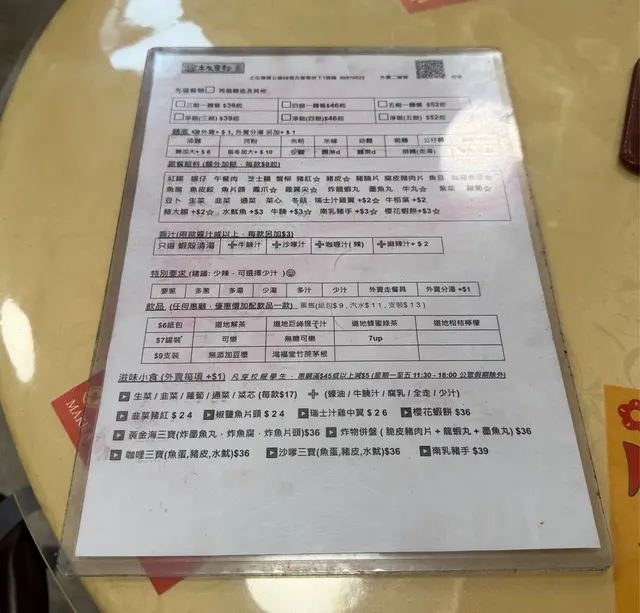 外賣二維號
先選餐類 兩選麵底及其他
三餸一麵餐 $39起 四餸一麵餐 $46起 五餸一麵餐 $52起
淨餸(三餸) $39起 淨餸(四餸) $46起 淨餸(五餸) $52起
外賣+$1, 外賣分湯 另加+$1
油麵 河粉 米粉 米線 幼麵 粗麵 公仔麵
麵加大+$6
跟餐餸料 (額外加餸,每款$8起)
紅腸 腿仔 午餐肉 芝士腸 蟹柳 豬紅☆ 豬皮☆ 豬腩片 腐皮豬肉片 魚豆
魚崗 魚皮餃 魚片頭 鳳爪☆ 雞翼尖☆ 炸龍蝦丸 墨魚丸 牛丸☆ 紫菜 蘿蔔☆
豆卜 生菜 韭菜 通菜 菜心 冬菇 瑞士汁雞翼+$2☆ 牛栢葉+$2
豬大腸+$2☆ 水魷魚+$3 牛腩+$3☆ 南乳豬手+$3☆ 櫻花蝦餅+$3☆
醬汁(兩款醬汁或以上,每款另加$3)
只選 蝦殼清湯 牛腩汁 沙嗲汁 咖喱汁(辣) 麻辣汁+$2
特別要求 (建議: 少辣,可選擇少汁)
要蔥 多蔥 多湯 少湯 多汁 少汁 外賣走餐具 外賣分湯 +$1
飲品 (任何惠顧,優惠價加配飲品一款) 單售(紙包$9,汽水$11,支裝$13)
$6紙包 道地解茶 道地巨峰提子汁 道地蜂蜜綠茶 道地柑桔檸檬
$7罐裝 可樂 無糖可樂 7up
$9支裝 無添加豆漿 鴻福堂竹蔗茅根
滋味小食 (外賣每項 +$1) 凡穿校服學生,惠顧滿$45或以上減$5 (星期一至五 11:30 - 18:00 公眾假期除外)
生菜 / 韭菜 / 蘿蔔 / 通菜 / 菜芯 (每款$17) (蠔油 / 牛腩汁 / 腐乳 / 全走 / 少汁)
韭菜豬紅 $24 椒鹽魚片頭 $24 瑞士汁雞中翼 $26 櫻花蝦餅 $36
黃金海三寶(炸墨魚丸,炸魚腐,炸魚片頭)$36 炸物併盤 (脆皮豬肉片 + 龍蝦丸 + 墨魚丸) $36
咖喱三寶(魚蛋,豬皮,水魷)$36 沙嗲三寶(魚蛋,豬皮,水魷)$36 南乳豬手 $39